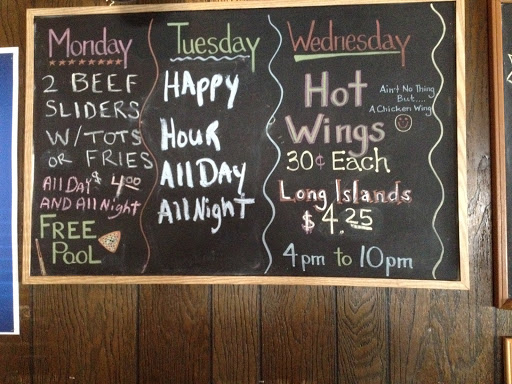 Monday
2 BEEF
SLIDERS
W/TOTS
OR FRIES
All DAY $4.00
AND All Night
FREE
POOL
Tuesday
HAPPY
HOUR
All DAY
All NighT
Wednesday
Hot
Wings
Ain't No Thing
But....
A Chicken Wing
30¢ Each
Long Islands
$4.25
4pm to 10pm